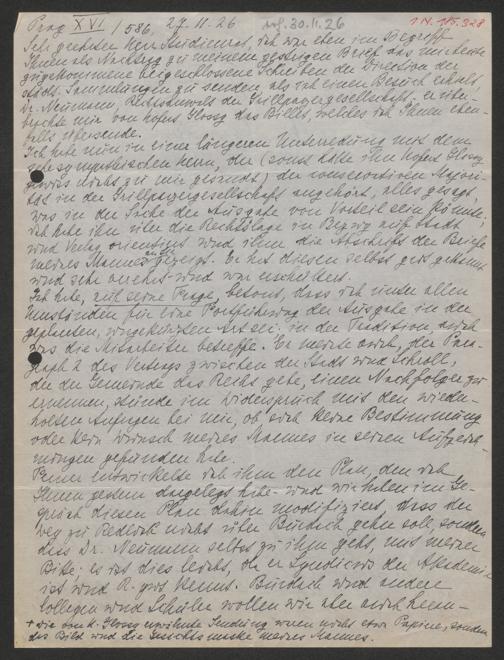 Prag XVI / 586, 27. 11. 26 erh. 30. 11. 26 I N. 165.328
Sehr geehrter Herr Studienrat, ich war eben im Begriff
Ihnen als Nachtrag zu meinem gestrigen Brief das mir heute
zugekommene beigeschlossene Schreiben der Direktion der
städt. Sammlungen zu senden, als ich einen Besuch erhielt
Dr. Neumann, Rechtsanwalt der Grillparzergesellschaft, er über-
brachte mir von Hofrat Glossy das Billet, welches ich Ihnen eben-
falls übersende.
Ich habe nun in einer längeren Unterredung mit dem
sehr sympathischen Herrn, der (sonst hätte ihn Hofrat Glossy
gewiss nicht zu mir gesandt) der konservativen Majori-
tät in der Grillparzergesellschaft angehört, alles gesagt,
was in der Sache der Ausgabe von Vorteil sein könnte;
ich habe ihn über die Rechtslage in Bezug auf Stadt
und Verlag orientiert und ihm die Abschrift der Briefe
meines Mannes gezeigt. Er hat diesen selbst gut gekannt
und sehr verehrt und war erschüttert.
Ich habe, auf seine Frage, betont, dass ich unter allen
Umständen für eine Fortführung der Ausgabe in der
geplanten, ungekürzten Art sei: in der Tradition, auch
was die Mitarbeiter betreffe. Er meinte auch, der Para-
graph 2 des Vertrags zwischen der Stadt und Schroll,
der der Gemeinde das Recht gebe, einen Nachfolger zu
ernennen, stünde im Widerspruch mit den wieder-
holten Anfragen bei mir, ob sich keine Bestimmung
oder kein Wunsch meines Mannes in seinen Aufzeich-
nungen gefunden habe.
Ferner entwickelte ich ihm den Plan, den ich
Ihnen gestern dargelegt habe und wir haben im Ge-
spräch diesen Plan dahin modifiziert, dass der
Weg zu Redlich nicht über Burdach gehen soll, sondern
dass Dr. Neumann selbst zu ihm geht, mit meiner
Bitte; es ist dies leicht, da er Syndicus der Akademie
ist und R. gut kennt. Burdach und andere
Kollegen und Schüler wollen wir aber auch heran-
+ die von H. Glossy erwähnte Sendung waren nicht etwa Papiere, sondern
das Bild und die Gesichtsmaske meines Mannes.